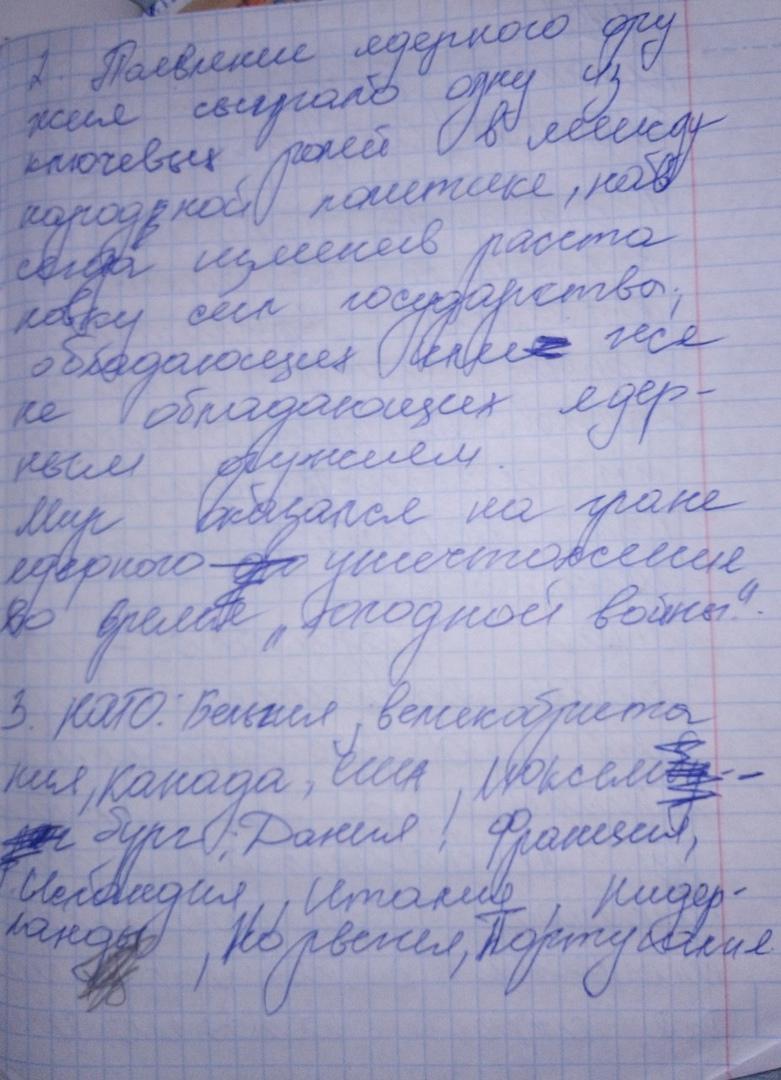 2. Появление ядерного ору
жия сыграло одну из
ключевых ролей в между
народной политике, нав
сегда изменив расста
новку сил государствы,
обладающих или не
не обладающих ядер-
ным оружием.
Мир оказался на гране
ядерного уничтожения
во время „холодной войны".
3. НАТО: Бельгия, великобрита
ния, Канада, США, Люксем-
бург, Дания, Франция,
Исландия, Италия, Нидер-
ланды, Норвегия, Португалия